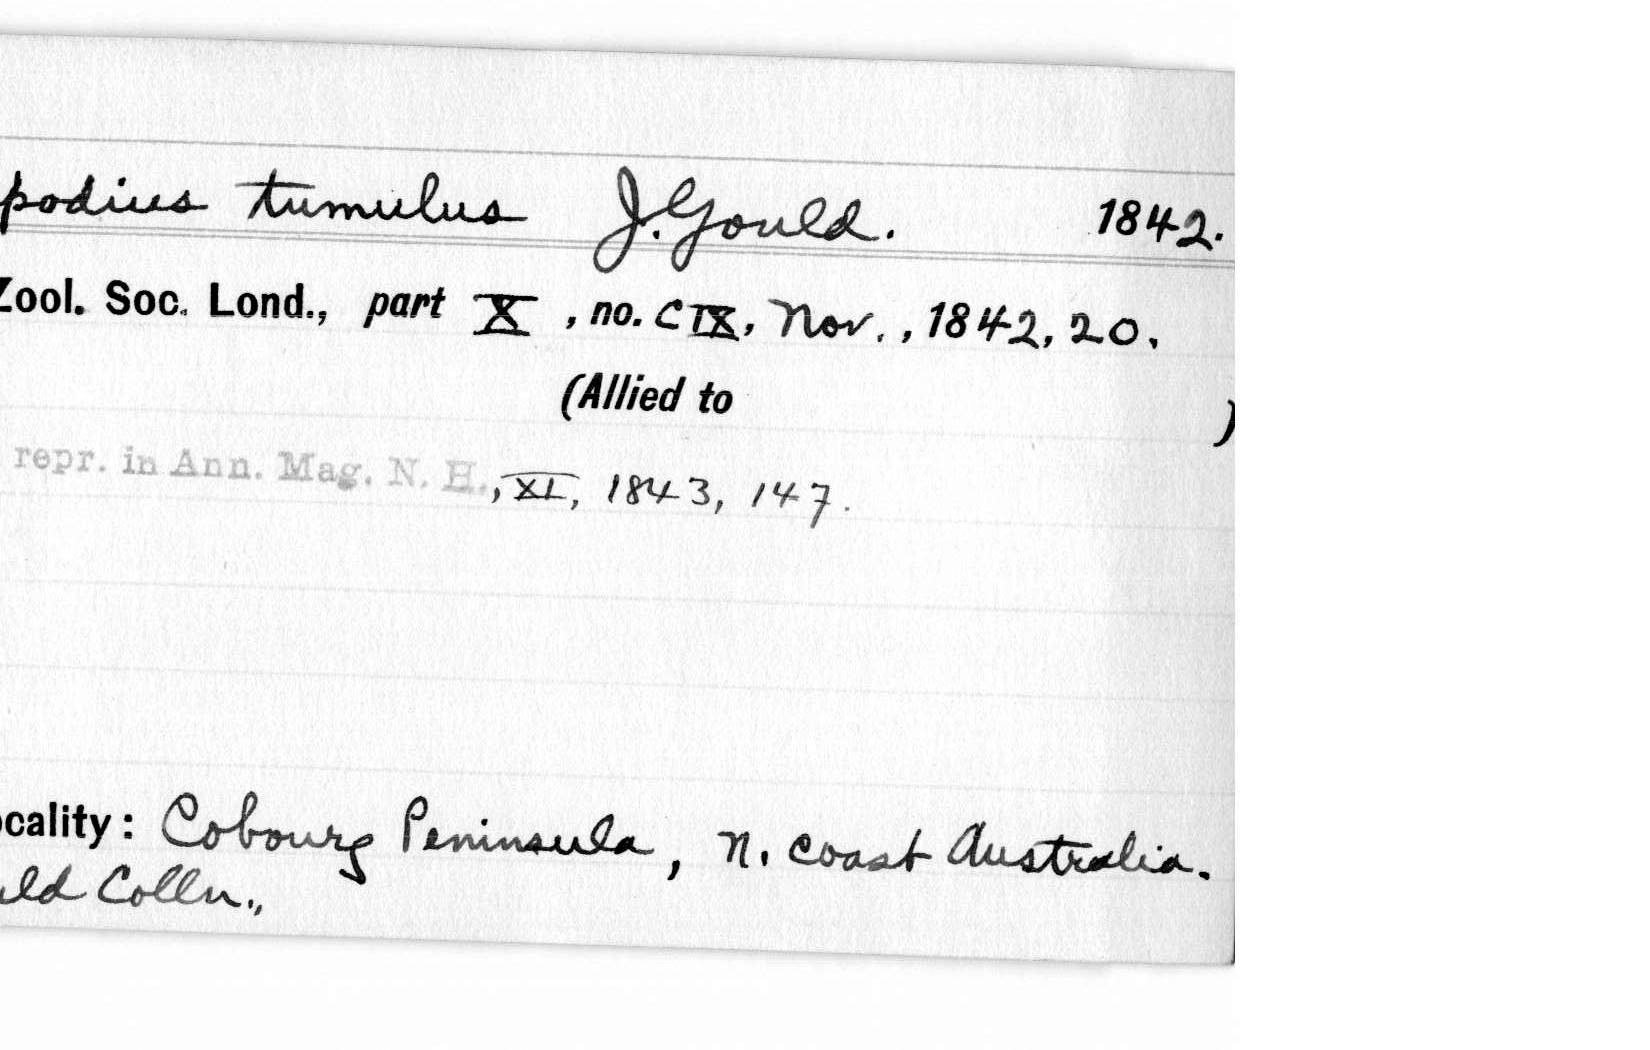 podius tumulus J. Gould. 1842.
Zool. Soc. Lond., part X, no. CIX, Nov., 1842, 20.
(Allied to )
repr. in Ann. Mag. N. H., XI, 1843, 147.
ocality: Cobourg Peninsula, N. coast Australia.
uld Colln.,,